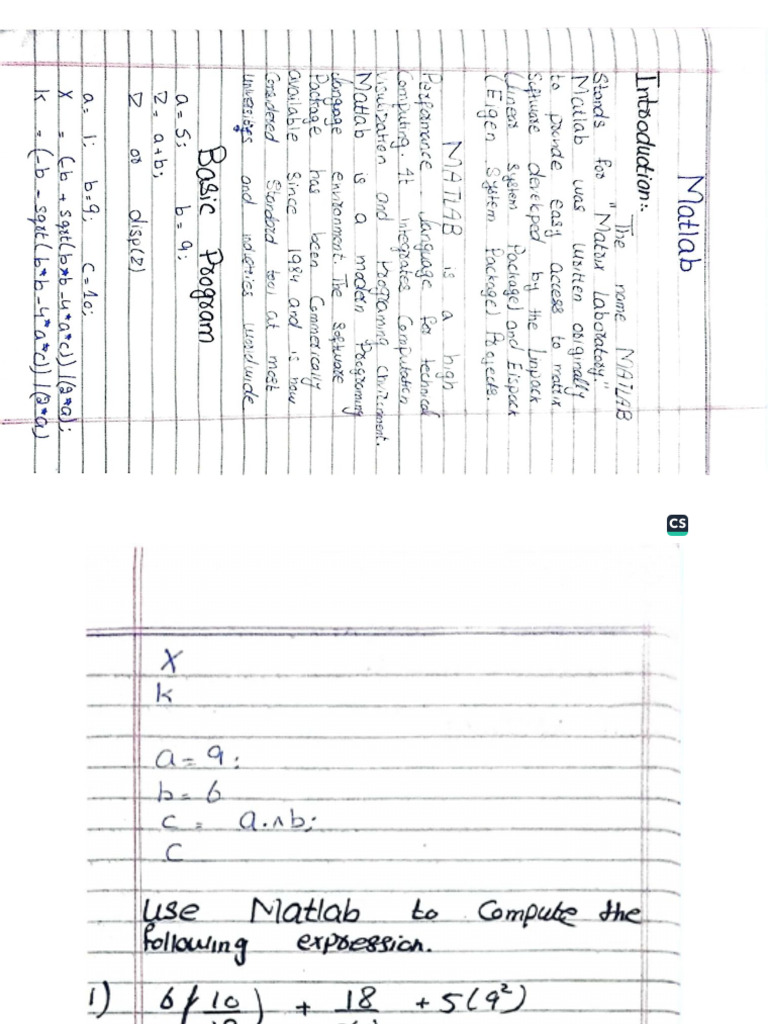 Matlab
Introduction:-
The name MATLAB
Stands for "Matrix Laboratory."
Matlab was written originally
to provide easy access to matrix
Software developed by the Linpack
(Linear system Package) and Eispack
(Eigen System Package) Projects.
MATLAB is a high
Performance language for technical
Computing. It integrates Computation
visulization and Programing environment.
Matlab is a modern Programing
language environment. The software
Package has been Commerically
available since 1984 and is now
Considered Standard tool at most
universities and industries worldwide
Basic Program
a = 5; b = 9;
Z = a+b;
Z or disp(Z)
a = 1; b=9; c=10;
x = (-b + sqrt(b*b-4*a*c))/(2*a);
k = (-b - sqrt(b*b-4*a*c))/(2*a)
CS
X
k
a = 9;
b = 6
c = a.^b;
C
use Matlab to Compute the
following expression.
1) 6(10 + 18 + 5(9²)